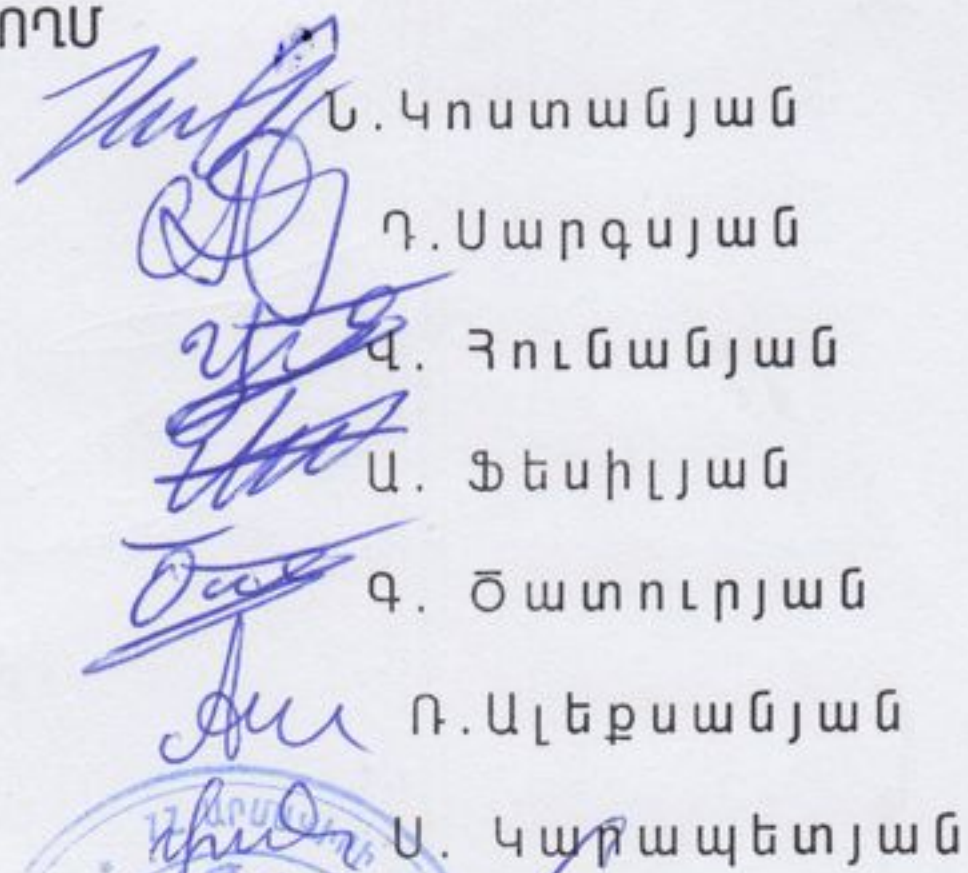 ՈՂՄ
Ն.Կոստանյան
Դ.Սարգսյան
Վ. Հունանյան
Ա. Ֆեսիլյան
Գ. Ծատուրյան
Ռ.Ալեքսանյան
ՀՀ ԱՐՄԱՎԻՐԻ
Ս. Կարապետյան